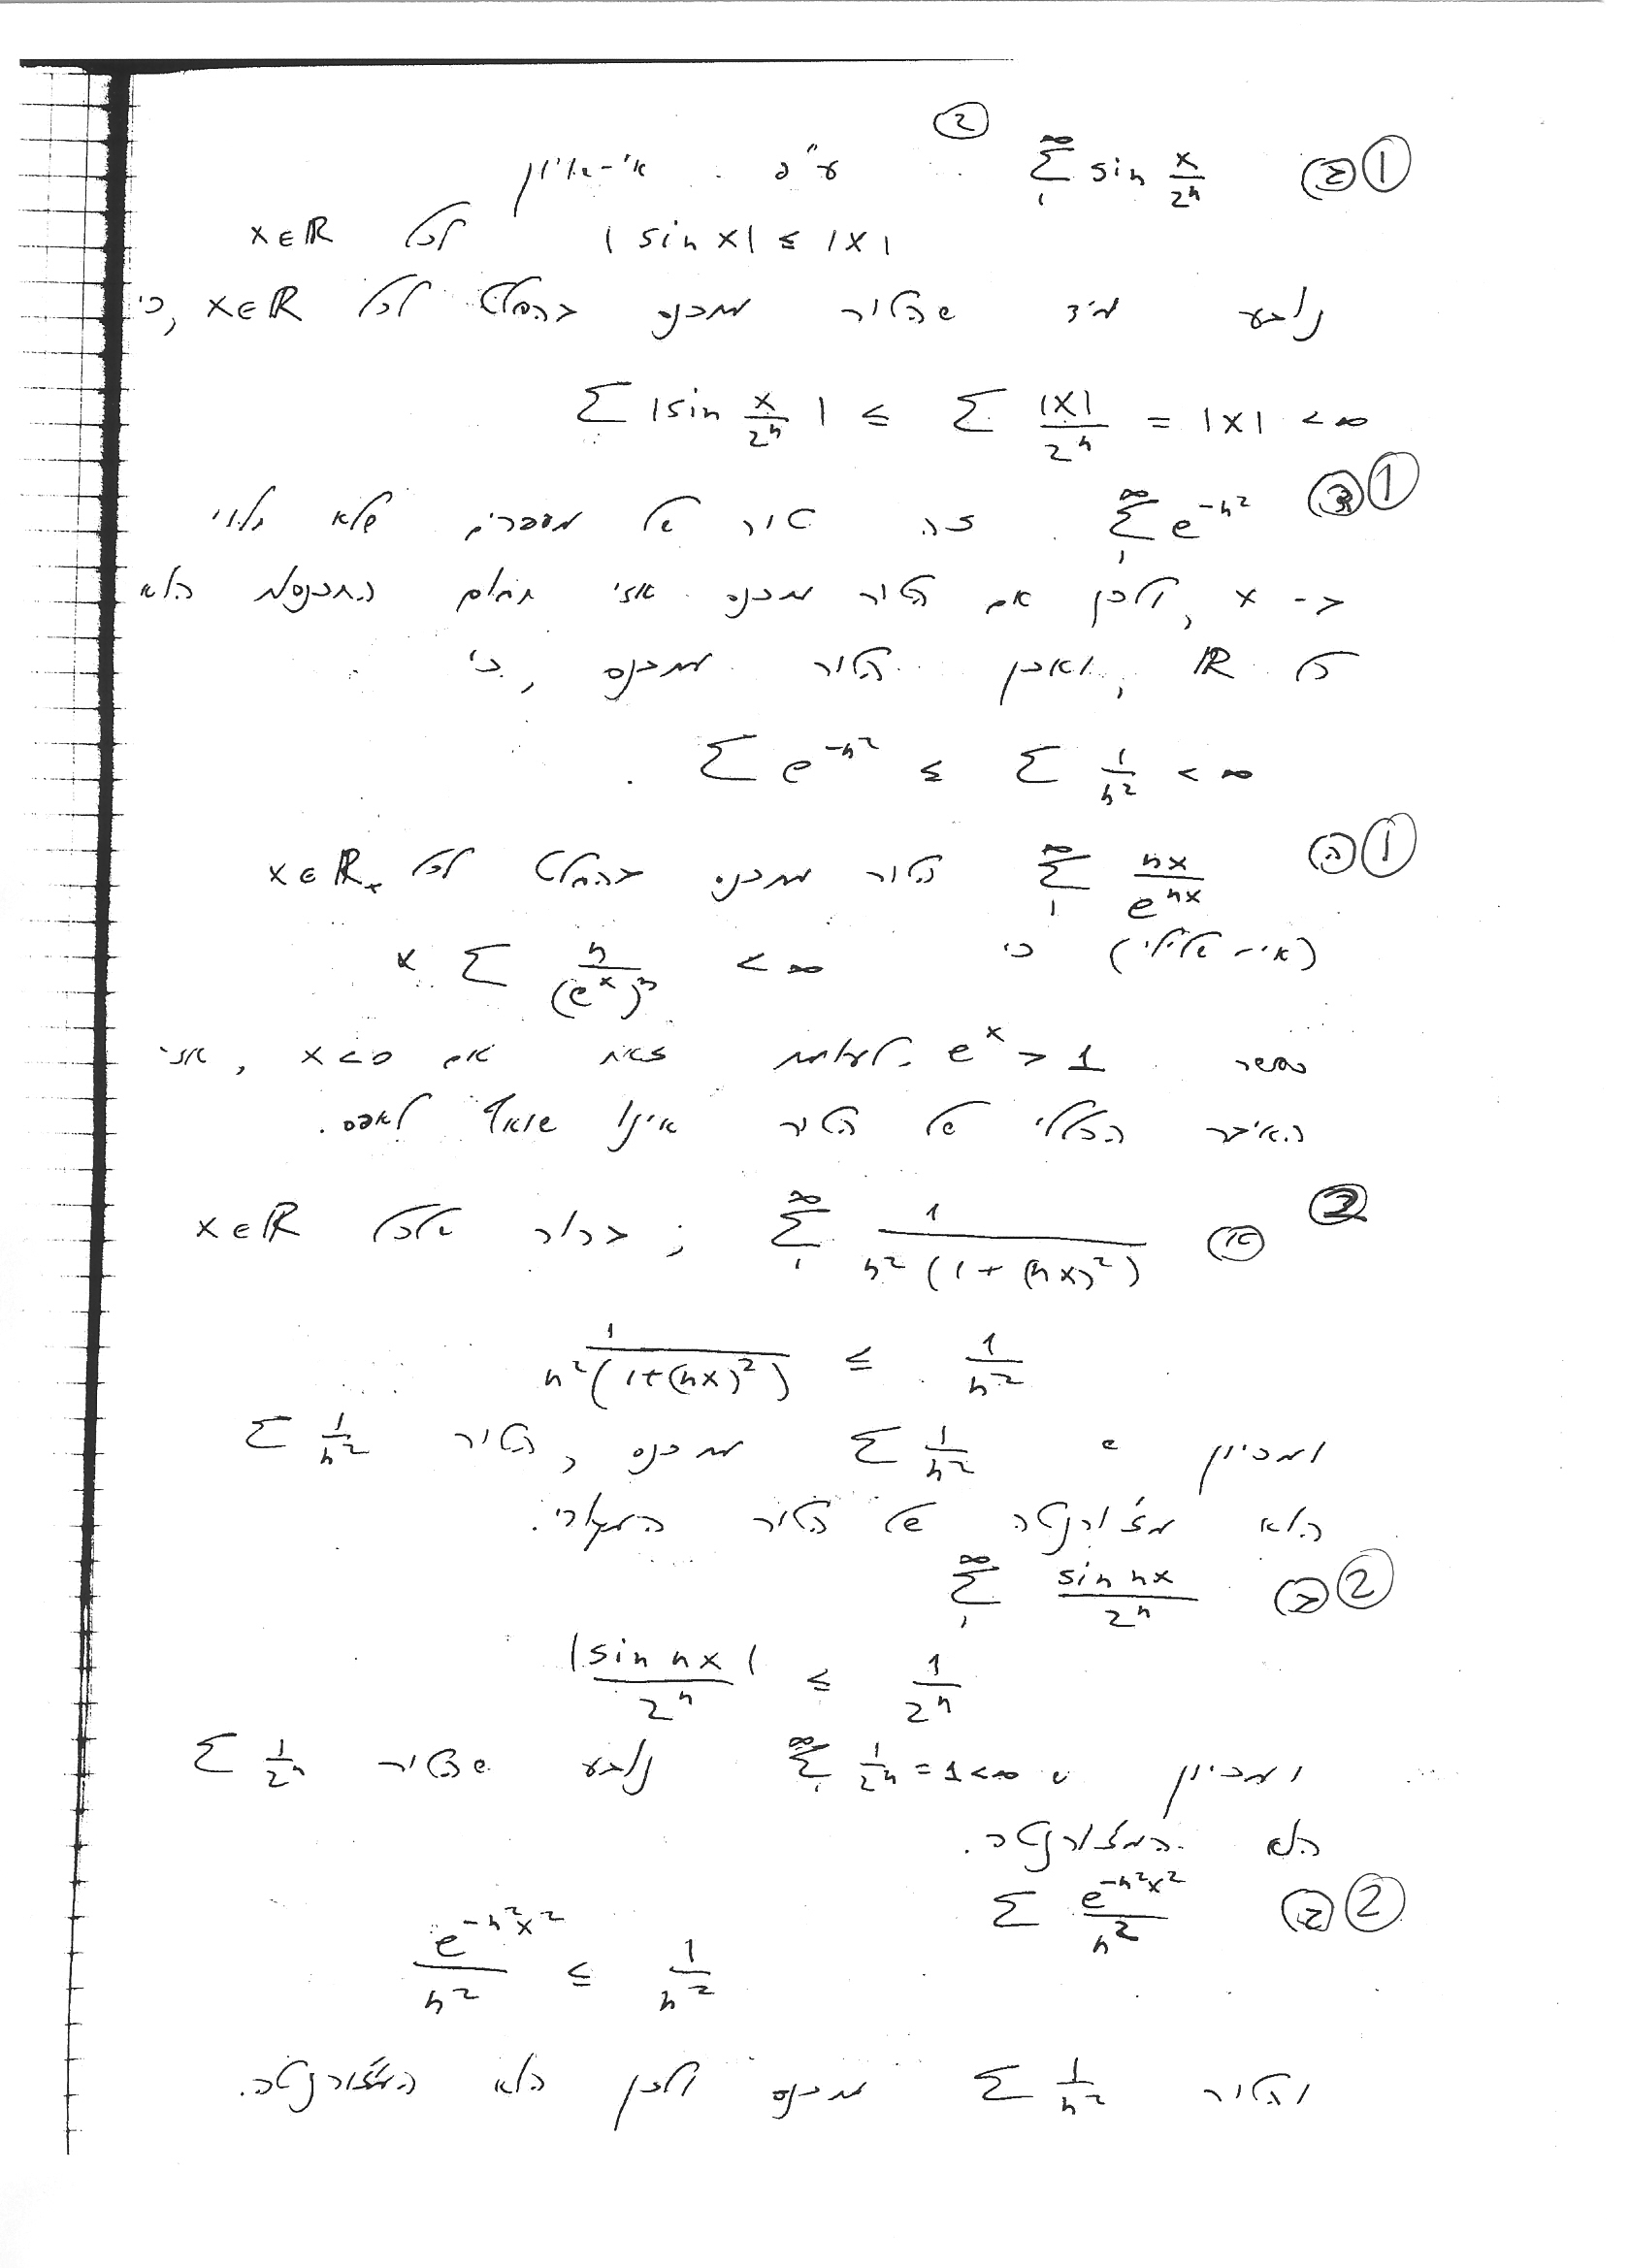 ②
①ג) $\sum_1^\infty \sin \frac{x}{2^n}$ . ע"פ אי-שוויון
$|\sin x| \le |x|$ לכל $x \in \mathbb{R}$
נובע מיד שהטור מתכנס בהחלט לכל $x \in \mathbb{R}$, כי
$\sum |\sin \frac{x}{2^n}| \le \sum \frac{|x|}{2^n} = |x| < \infty$
① $\sum_1^\infty e^{-n^2}$ . זה טור של מספרים שלא תלוי
ב- x, ולכן אם הטור מתכנס אזי תחום התכנסות הוא
כל $\mathbb{R}$, ואכן הטור מתכנס, כי
$\sum e^{-n^2} \le \sum \frac{1}{n^2} < \infty$ .
①ה) $\sum_1^\infty \frac{nx}{e^{nx}}$ הטור מתכנס בהחלט לכל $x \in \mathbb{R}_+$
(אי-שלילי) כי $x \sum \frac{n}{(e^x)^n} < \infty$
כאשר $e^x > 1$. לעומת זאת אם $x < 0$, אזי
האיבר הכללי של הטור אינו שואף לאפס.
②א) $\sum_1^\infty \frac{1}{n^2(1+(nx)^2)}$ ; ברור שלכל $x \in \mathbb{R}$
$\frac{1}{n^2(1+(nx)^2)} \le \frac{1}{n^2}$
ומכיוון ש $\sum \frac{1}{n^2}$ מתכנס, הטור $\sum \frac{1}{n^2}$
הוא מז'ורנטה של הטור המקורי.
②ב) $\sum_1^\infty \frac{\sin nx}{2^n}$
$\frac{|\sin nx|}{2^n} \le \frac{1}{2^n}$
ומכיוון ש $\sum_1^\infty \frac{1}{2^n} = 1 < \infty$ נובע שהטור $\sum \frac{1}{2^n}$
הוא המז'ורנטה.
②ג) $\sum \frac{e^{-n^2x^2}}{n^2}$
$\frac{e^{-n^2x^2}}{n^2} \le \frac{1}{n^2}$
והטור $\sum \frac{1}{n^2}$ מתכנס ולכן הוא המז'ורנטה.